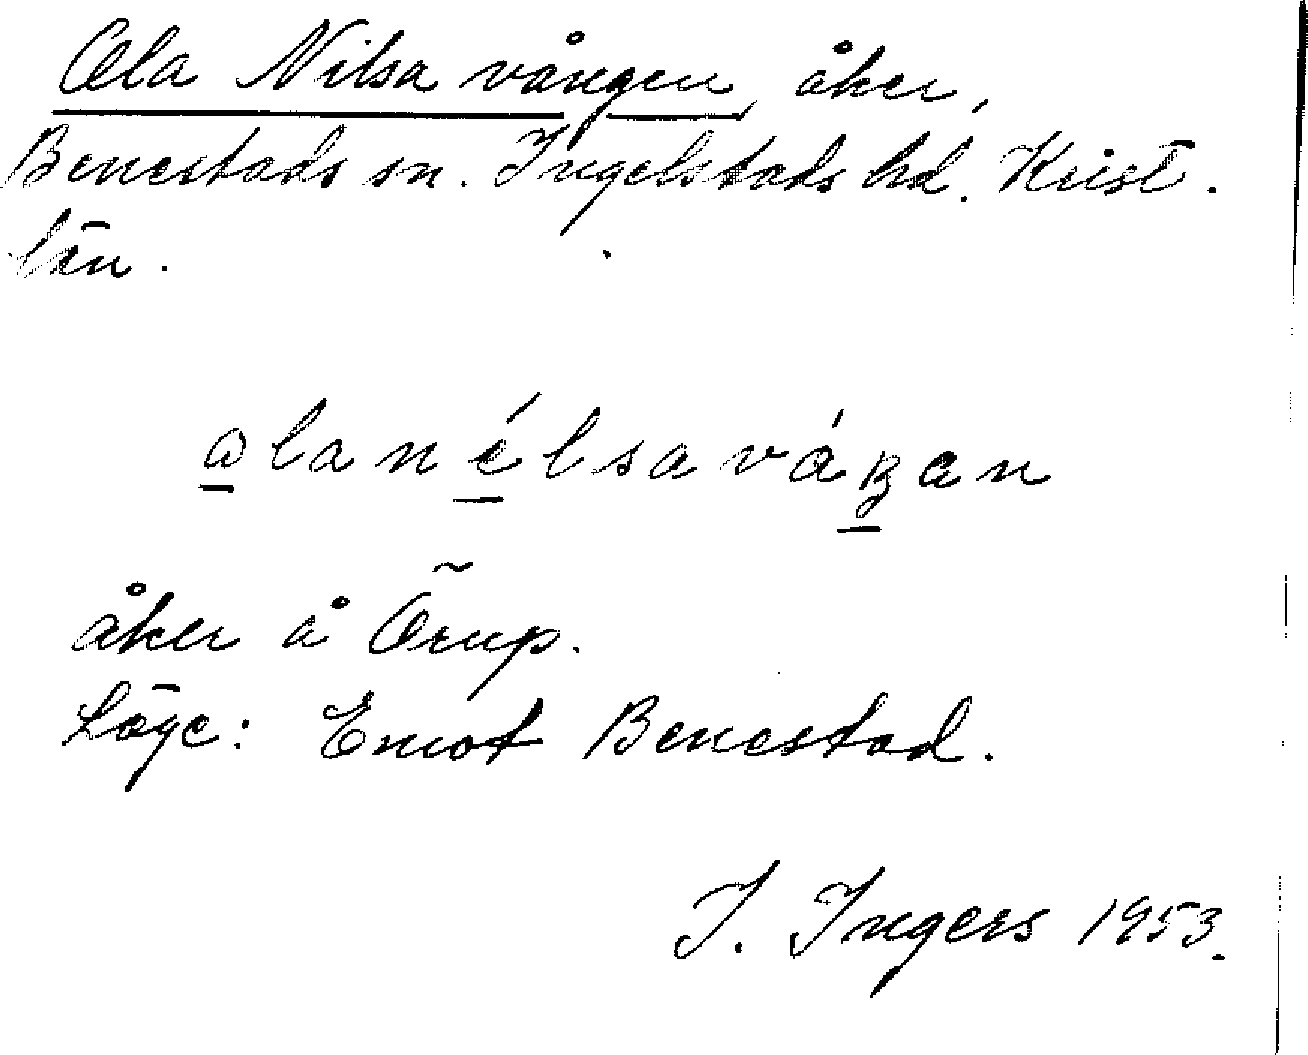 Ola Nilsa vången, åker,
Benestads sn. Ingelstads hd. Krist.
län.
alanélsaváŋan
åker å Örup.
Läge: Emot Benestad.
I. Ingers 1953.